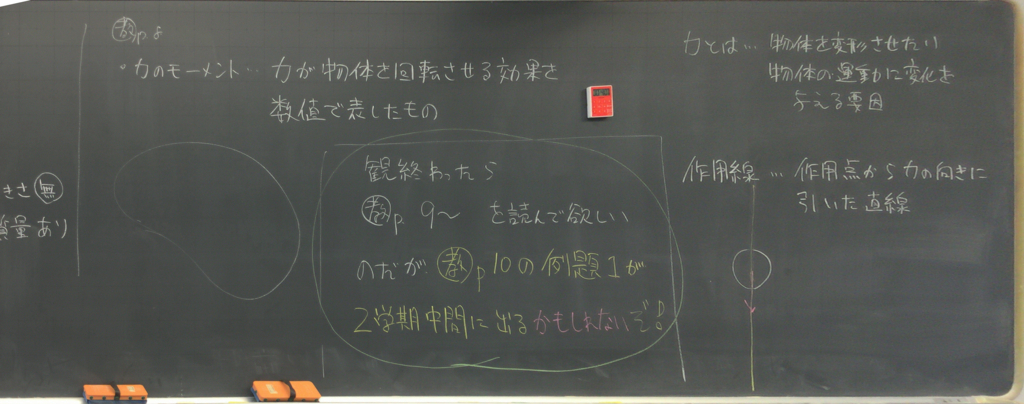 きさ 無
質量あり
教p8
・力のモーメント… 力が物体を回転させる効果を
数値で表したもの
観終わったら
教p 9〜 を読んで欲しい
のだが 教p10の例題1が
2学期中間に出るかもしれないぞ!
力とは… 物体を変形させたい
物体の運動に変化を
与える要因
作用線… 作用点から力の向きに
引いた直線